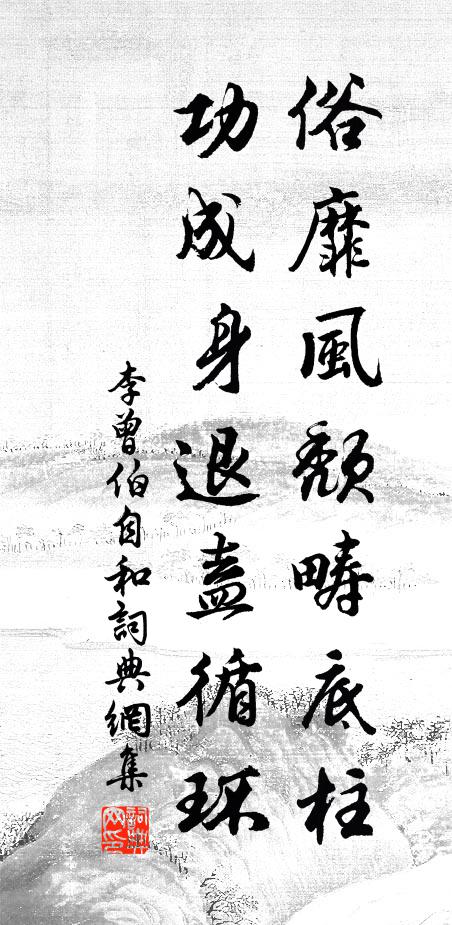 俗靡風頹疇底柱
功成身退盍循环
李曾伯自和詞典網集
詞典网印